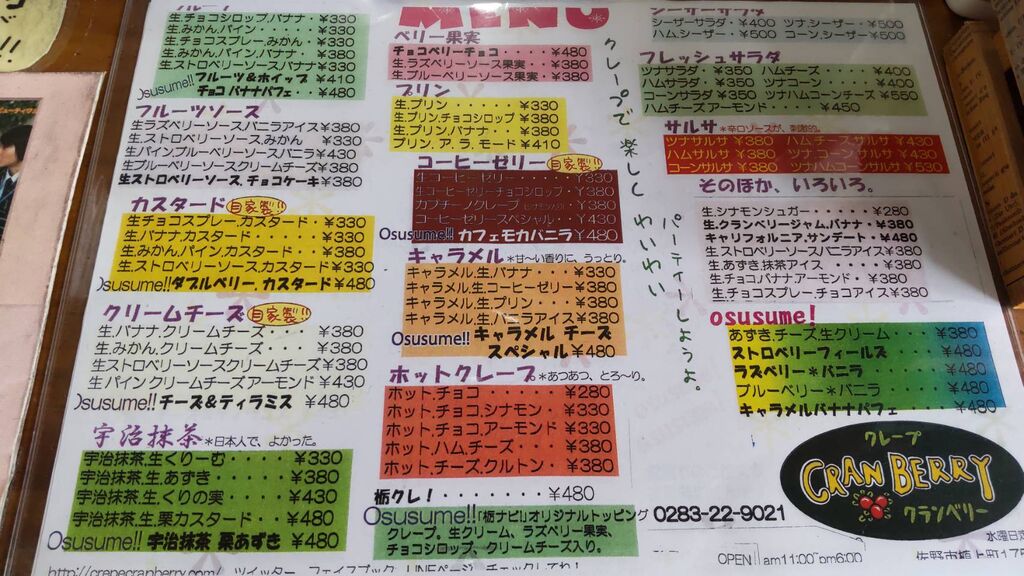 MENU
生.チョコシロップ.バナナ・¥330
生.みかん.パイン・・・・¥330
生.チョコスプレー.みかん・¥330
生.みかん.パイン.バナナ・¥380
生.ストロベリーソースバナナ¥330
Osusume!!フルーツ&ホイップ ¥410
チョコ バナナパフェ・・¥480
フルーツソース
生ラズベリーソースバニラアイス¥380
生.ストロベリーソース.みかん ¥330
生パイン.ブルーベリーソースバニラ¥430
生ブルーベリーソースクリームチーズ¥380
生ストロベリーソース.チョコケーキ¥380
カスタード 自家製!!
生チョコスプレー.カスタード・¥330
生.バナナ.カスタード・・・¥330
生.みかん.パイン.カスタード・¥380
生.ストロベリーソース.カスタード・¥330
Osusume!!ダブルベリー.カスタード ¥480
クリームチーズ 自家製!!
生.バナナ.クリームチーズ・・¥380
生.みかん.クリームチーズ・・・¥380
生ストロベリーソースクリームチーズ¥380
生パインクリームチーズアーモンド ¥430
Osusume!! チーズ&ティラミス ¥480
宇治抹茶 *日本人で、よかった。
宇治抹茶.生くりーむ・・・¥330
宇治抹茶.生.あずき・・・・¥380
宇治抹茶.生.くりの実・・・¥430
宇治抹茶.生.栗カスタード・・¥480
Osusume!! 宇治抹茶 栗あずき ¥480
http://crepecranberry.com/ ツイッター フェイスブック LINEページ チェックしてね!
ベリー果実
チョコベリーチョコ・・・・¥480
生.ラズベリーソース果実・・¥380
生.ブルーベリーソース果実・¥380
プリン
生.プリン・・・・・・¥330
生.プリン.チョコシロップ・¥380
生.プリン.バナナ・・・¥380
プリン.ア.ラ.モード・・¥410
コーヒーゼリー 自家製!!
生コーヒーゼリー・・・・¥330
生コーヒーゼリーチョコシロップ・¥380
カプチーノクレープ ¥380
コーヒーゼリースペシャル・・¥430
Osusume!! カフェモカバニラ ¥480
キャラメル *甘〜い香りに、うっとり。
キャラメル.生.バナナ・・・¥330
キャラメル.生コーヒーゼリー¥380
キャラメル.生.プリン・・・¥380
キャラメル.生.バニラアイス・¥380
Osusume!! キャラメル チーズ
スペシャル ¥480
ホットクレープ *あつあつ、とろ〜り。
ホット.チョコ・・・・・¥280
ホット.チョコ.シナモン・・¥330
ホット.チョコ.アーモンド ¥330
ホット.ハム.チーズ・・・¥380
ホット.チーズ.クルトン・・¥380
栃クレ!・・・・・・・¥480
Osusume!!「栃ナビ!」オリジナルトッピング
クレープ。生クリーム、ラズベリー果実、
チョコシロップ、クリームチーズ入り。
クレープで楽しくわいわい
パーティーしようよ。
シーザーサラダ
シーザーサラダ・¥400 ツナ.シーザー・¥500
ハム.シーザー・¥500 コーン.シーザー・¥500
フレッシュサラダ
ツナサラダ・¥350 ハムチーズ・・・・¥400
ハムサラダ・¥350 ツナコーン・・・・¥400
コーンサラダ・¥350 ツナハムコーンチーズ・¥550
ハムチーズアーモンド・・・・¥450
サルサ *辛口ソースが、刺激的。
ツナサルサ ¥380 ハムチーズ.サルサ ¥430
ハムサルサ ¥380 ツナコーン.サルサ ¥430
コーンサルサ ¥380 ツナハムコーンサルサ ¥530
そのほか、いろいろ。
生.シナモンシュガー・・・・・¥280
生.クランベリージャム.バナナ・¥380
キャリフォルニア.サンデート・・¥480
生.ストロベリーソースバニラアイス¥380
生.あずき.抹茶アイス・・・・¥380
生.チョコ.バナナ.アーモンド・¥380
生.チョコスプレー.チョコアイス¥380
osusume!
あずき.チーズ.生クリーム・・・¥380
ストロベリーフィールズ・・・¥480
ラズベリー*バニラ・・・・¥480
ブルーベリー*バニラ・・・¥480
キャラメルバナナパフェ・・¥480
クレープ
CRAN BERRY
クランベリー
0283-22-9021
水曜日定
OPEN am11:00~pm6:00
佐野市植上町17